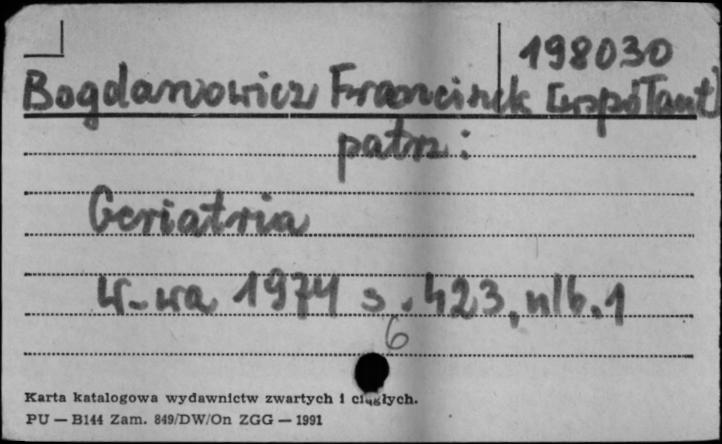 198030
Bogdanowicz Franciszek [współaut]
patrz:
Geriatria
W-wa 1974 s. 423, nlb. 1
6
Karta katalogowa wydawnictw zwartych i ciągłych.
PU — B144 Zam. 849/DW/On ZGG — 1991